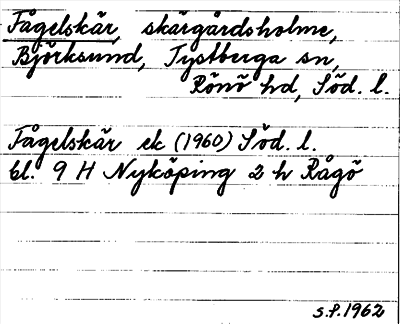 Fågelskär, skärgårdsholme,
Björksund, Tystberga sn,
Rönö hd, Söd. l.
Fågelskär ek (1960) Söd. l.
bl. 9 H Nyköping 2 h Rågö
s.f. 1962